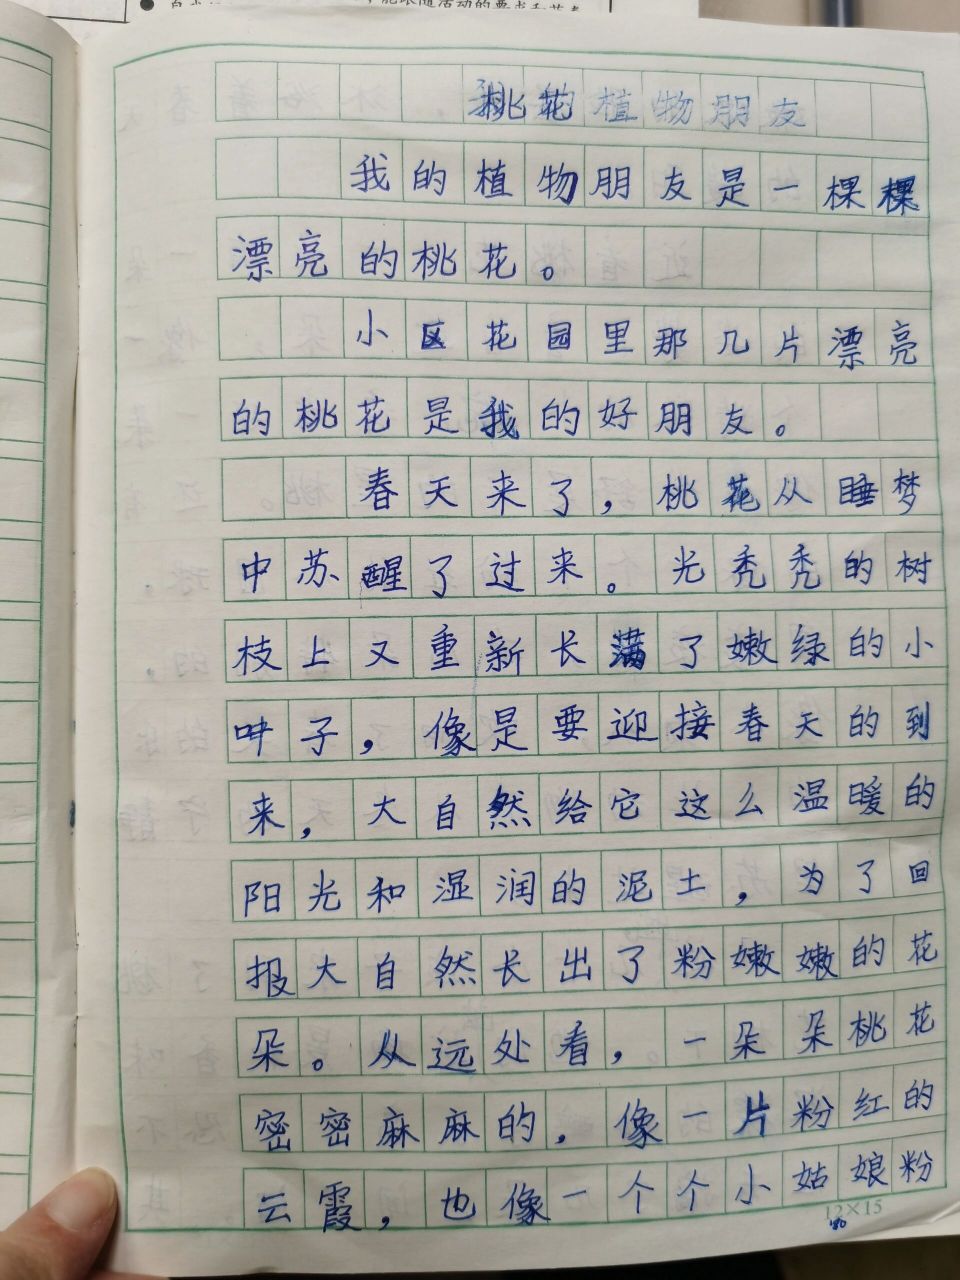 桃花植物朋友
我的植物朋友是一棵棵
漂亮的桃花。
小区花园里那几片漂亮
的桃花是我的好朋友。
春天来了，桃花从睡梦
中苏醒了过来。光秃秃的树
枝上又重新长满了嫩绿的小
叶子，像是要迎接春天的到
来，大自然给它这么温暖的
阳光和湿润的泥土，为了回
报大自然长出了粉嫩嫩的花
朵。从远处看，一朵朵桃花
密密麻麻的，像一片粉红的
云霞，也像一个个小姑娘粉
12×15
180